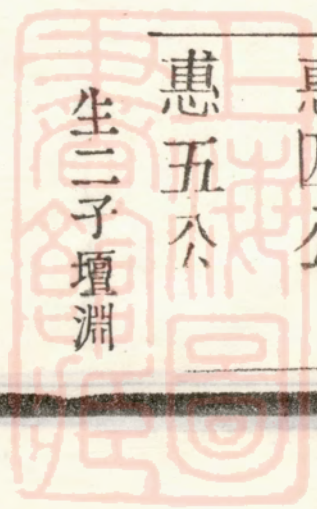 惠四公
惠五公
生二子璮淵